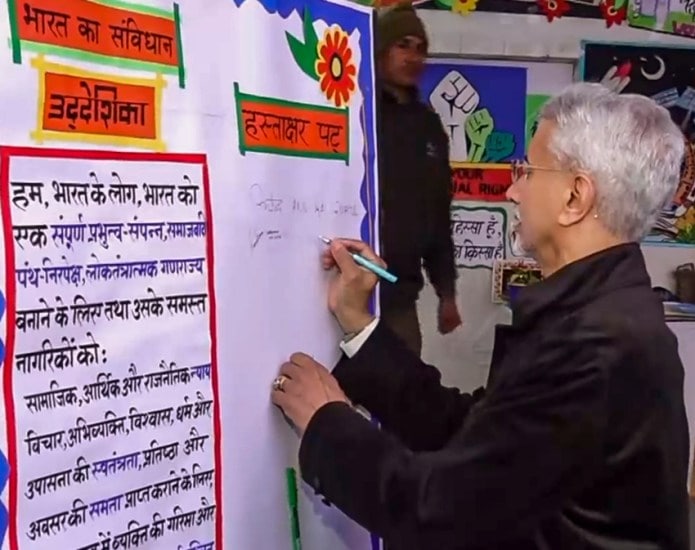 भारत का संविधान
उद्देशिका
हम, भारत के लोग, भारत को
एक संपूर्ण प्रभुत्व-संपन्न, समाजवादी
पंथ-निरपेक्ष, लोकतंत्रात्मक गणराज्य
बनाने के लिए तथा उसके समस्त
नागरिकों को:
सामाजिक, आर्थिक और राजनैतिक न्याय
विचार, अभिव्यक्ति, विश्वास, धर्म और
उपासना की स्वतंत्रता, प्रतिष्ठा और
अवसर की समता प्राप्त कराने के लिए,
में व्यक्ति की गरिमा और
हस्ताक्षर पट्
YOUR
RIGH
हिस्सा हूँ,
का किस्सा है